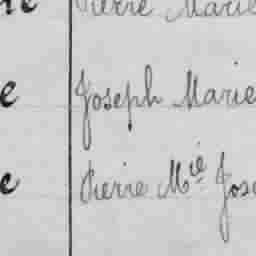 Pierre Marie
e Joseph Marie
e Pierre Mié Jose